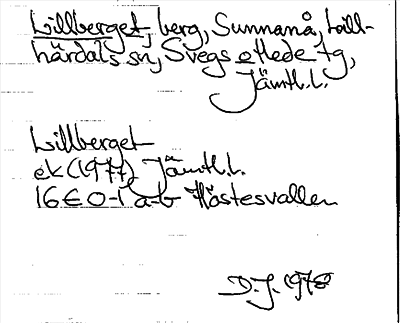 Lillberget, berg, Sunnanå, Lill-
härdals sn, Svegs o Hede tg,
Jämtl.l.
Lillberget
ek (1977) Jämtl.l.
16E 0-1 a-b Hästesvallen
D.J. 1978